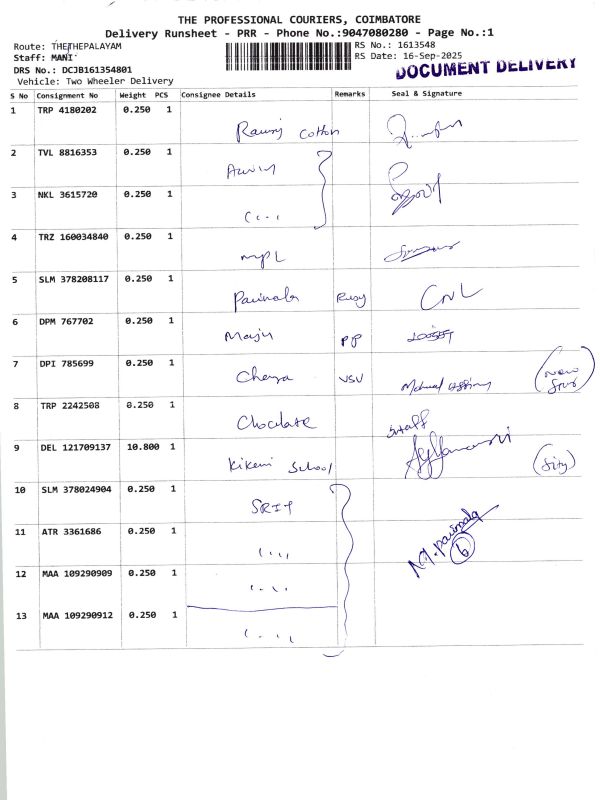 THE PROFESSIONAL COURIERS, COIMBATORE
Delivery Runsheet - PRR - Phone No.:9047080280 - Page No.:1
Route: THETHEPALAYAM
Staff: MANI
DRS No.: DCJB161354801
Vehicle: Two Wheeler Delivery
RS No.: 1613548
RS Date: 16-Sep-2025
DOCUMENT DELIVERY
S No Consignment No Weight PCS Consignee Details Remarks Seal & Signature
1 TRP 4180202 0.250 1 Cotton
2 TVL 8816353 0.250 1
3 NKL 3615720 0.250 1
4 TRZ 160034840 0.250 1 MPL
5 SLM 378208117 0.250 1
6 DPM 767702 0.250 1 PP
7 DPI 785699 0.250 1 VSV
8 TRP 2242508 0.250 1 Chocolate Staff
9 DEL 121709137 10.800 1 School
10 SLM 378024904 0.250 1
11 ATR 3361686 0.250 1
12 MAA 109290909 0.250 1
13 MAA 109290912 0.250 1
6